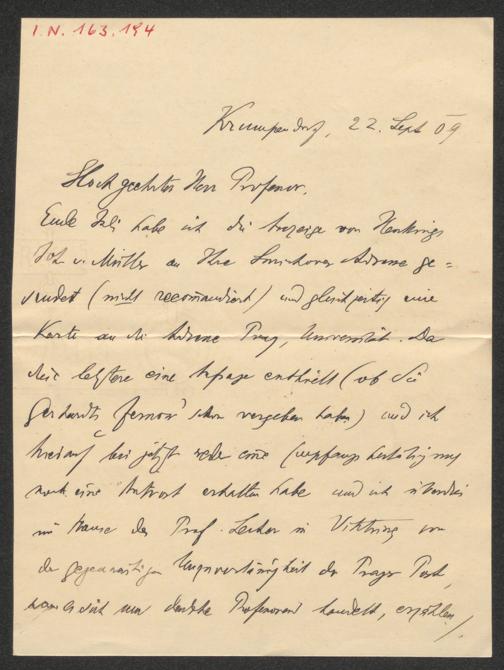 I. N. 163.194
Krumpendorf, 22. Sept 09
Hochgeehrter Herr Professor.
Ende Juli habe ich die Anzeige von Henkings
Joh. v. Müller an Ihre Smichover Adresse ge-
sendet (nicht recomandirt) und gleichzeitig eine
Karte an die Adresse Prag, Universität. Da
diese letztere eine Anfrage enthielt (ob Sie
Gerhardts Fernow schon vergeben haben) und ich
hierauf bis jetzt weder eine Empfangsbestätigung
noch eine Antwort erhalten habe und ich überdies
im Hause des Prof. Lecher in Viktring von
der gegenwärtigen Unzuverlässigkeit der Prager Post,
wenn es sich um deutsche Professoren handelt, erzählen